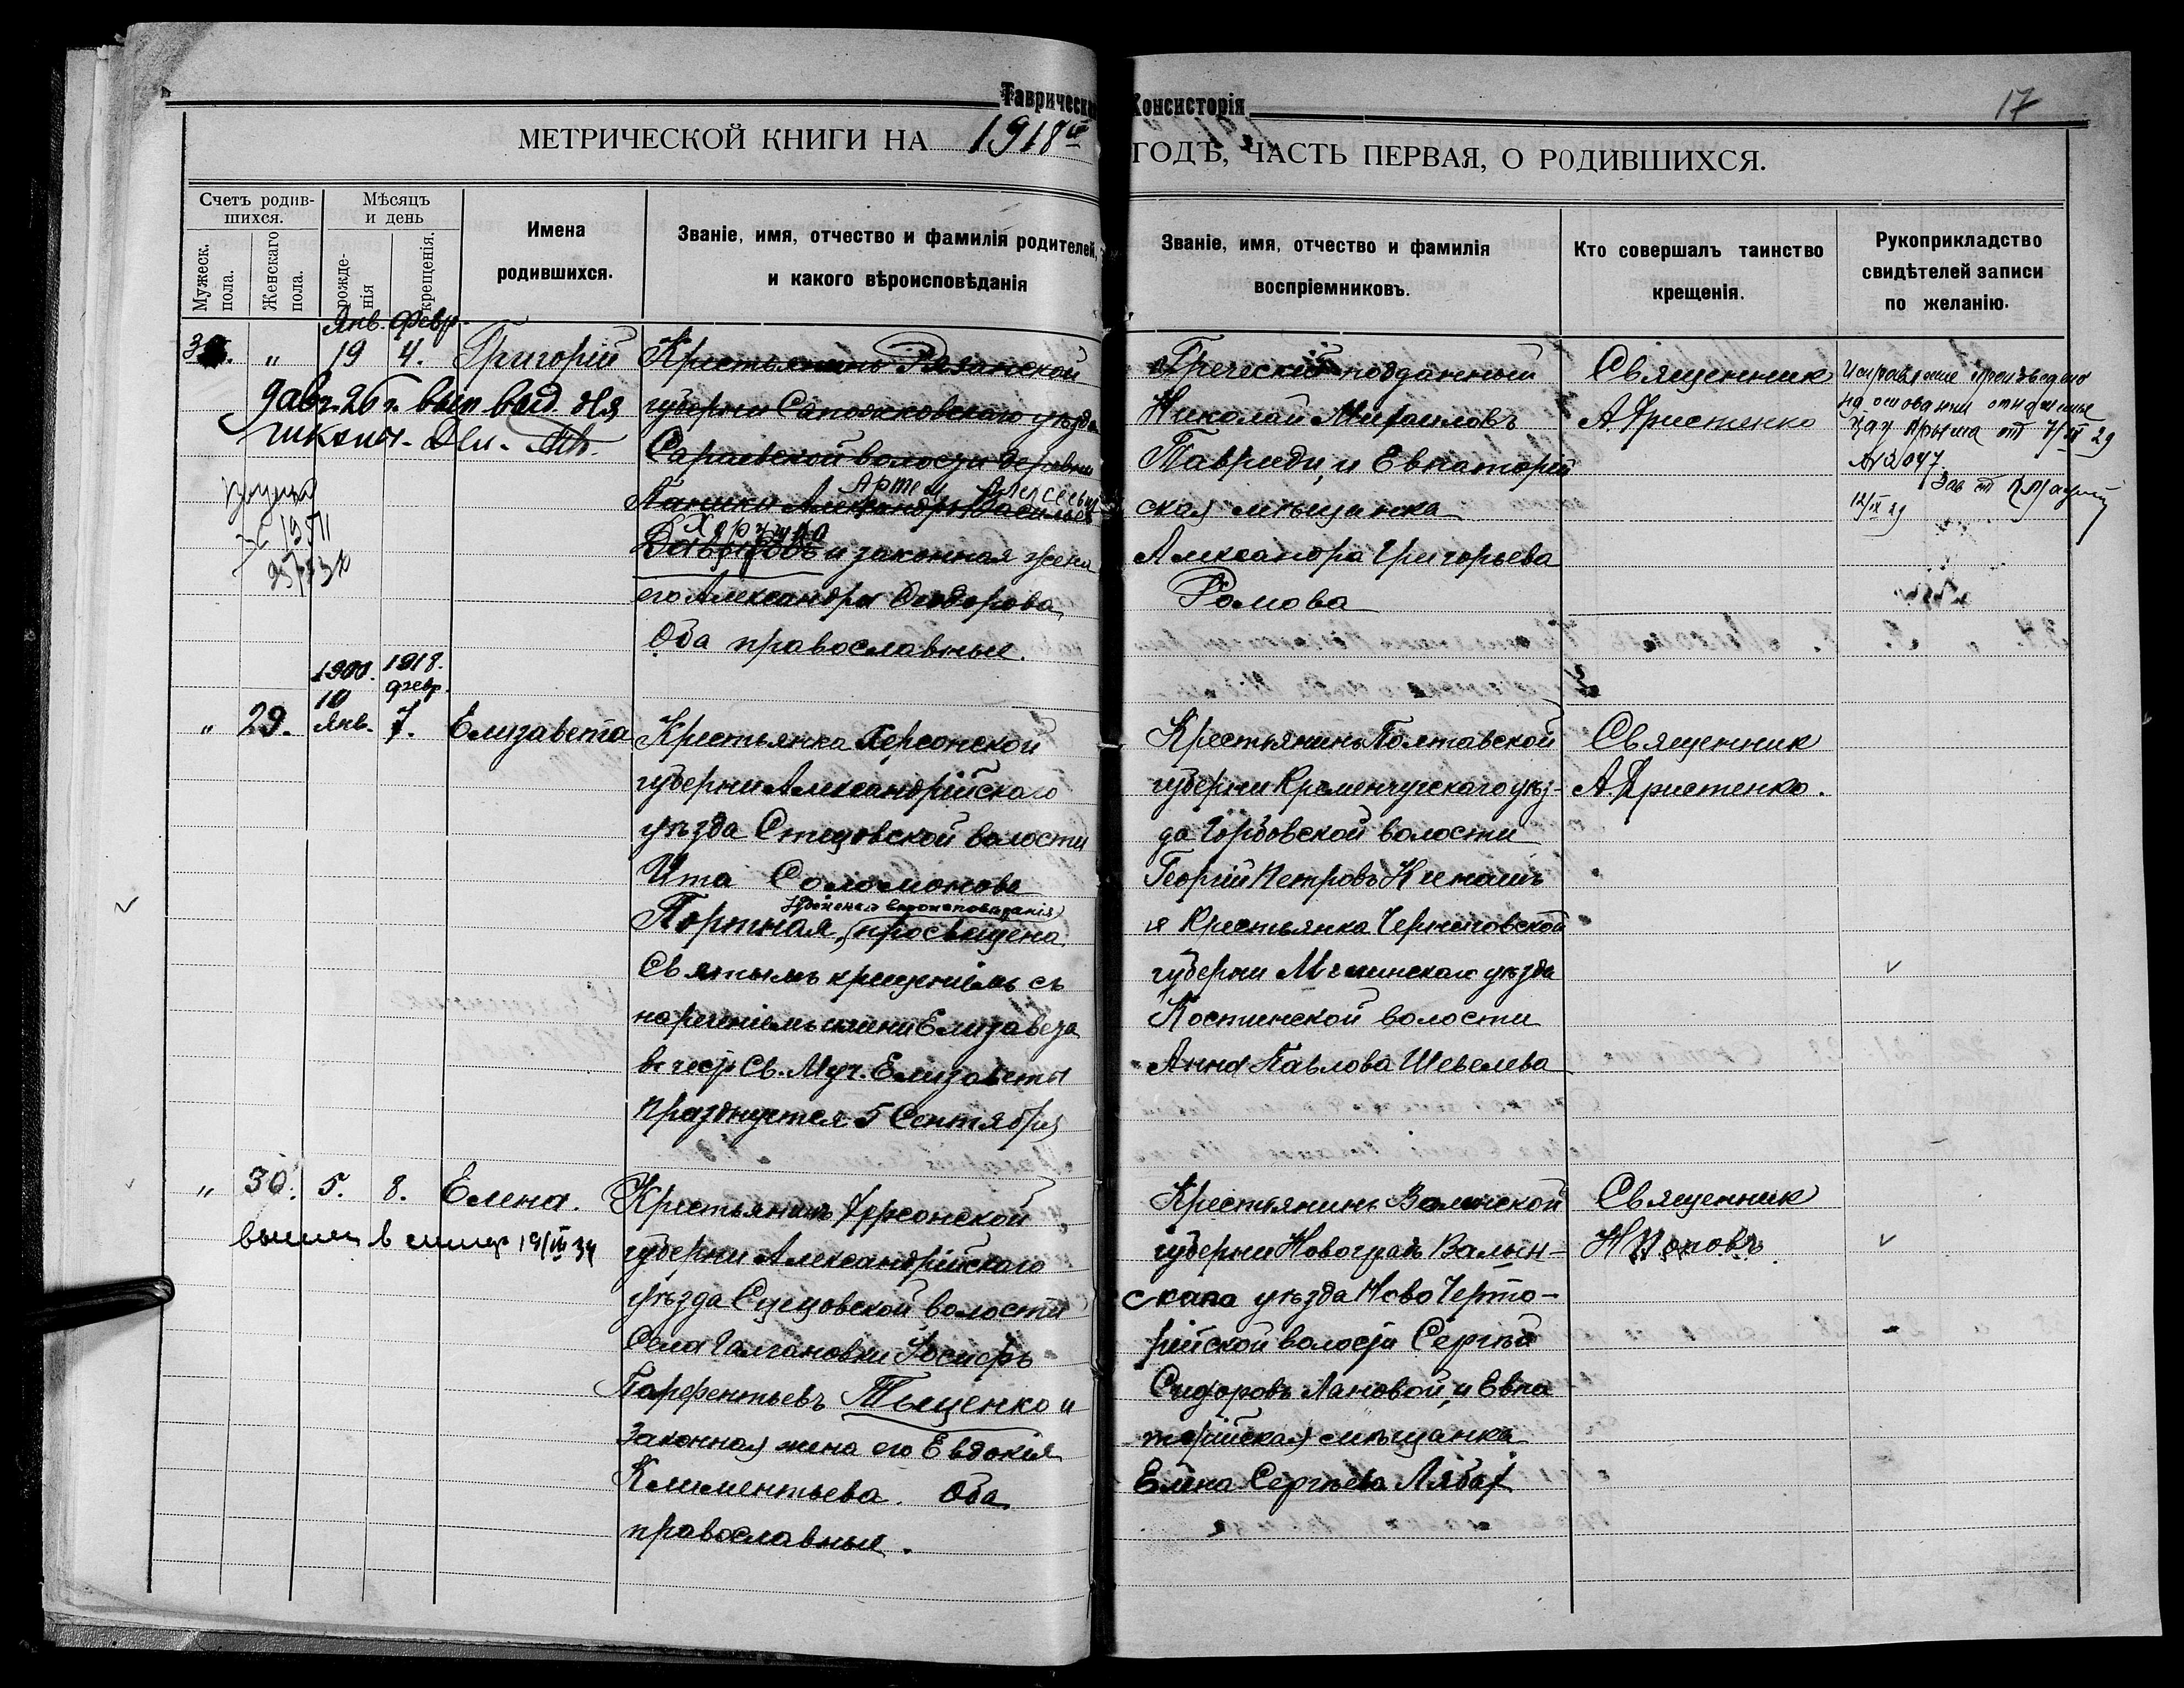 Таврическ Консисторія
17
МЕТРИЧЕСКОЙ КНИГИ НА 1918 ГОДЪ, ЧАСТЬ ПЕРВАЯ, О РОДИВШИХСЯ.
Счетъ родив-
шихся.
Мужеск.
пола.
Женскаго
пола.
Мѣсяцъ
и день
рожде-
нія
крещенія.
Имена
родившихся.
Званіе, имя, отчество и фамилія родителей,
и какого вѣроисповѣданія
Званіе, имя, отчество и фамилія
воспріемниковъ.
Кто совершалъ таинство
крещенія.
Рукоприкладство
свидѣтелей записи
по желанію.
Янв. Февр.
" 19 4. Григорій
Крестьянинъ Рязанской
губерніи Сапожковскаго уѣзда
Сараевской волости деревни
Артем Алексеевич
Александръ Васильев
Харчука
и законная жена
его Александра Феодорова
Оба православные.
Греческій подданный
Николай Михаиловъ
Тавриди, и Евпаторій
ская мѣщанка
Александра Григорьева
Ромова
Священник
А. Христенко
на основании отношения
Крыма от 7/IX 29
№ 2047.
12/IX 29
1900. 1918.
10 февр.
" 29. Янв. 7. Елизавета
Крестьянка Херсонской
губерни Александрійскаго
уѣзда Стецовской волости
Ита Соломонова
Іудейскаго вѣроисповѣданія
Портная, просвѣщена
Святымъ крещеніемъ съ
нареченіемъ имени Елизавета
в честь Св. Муч. Елизаветы
празднуется 5 Сентября
Крестьянинъ Полтавской
губерни Кременчугскаго уѣз-
да
волости
Георгій Петровъ
и Крестьянка Черниговской
губерни Мглинскаго уѣзда
Костинской волости
Анна Павлова Шевелева
Священник
А. Христенко.
" 30. 5. 8. Елена.
19/IV 34
Крестьянинъ Херсонской
губерни Александрійскаго
уѣзда Стецовской волости
Села Галгановки Іосифъ
Парфентьевъ Тыщенко и
Законная жена его Евдокія
Климентьева. Оба
православные.
Крестьянинъ Волынской
губерни Новоградъ Волын-
скаго уѣзда Ново Черто-
рійской волости Сергѣй
Сидоровъ Лановой, и Евпа
торійская мѣщанка
Елена Сергѣева
Священник
Н Поповъ.